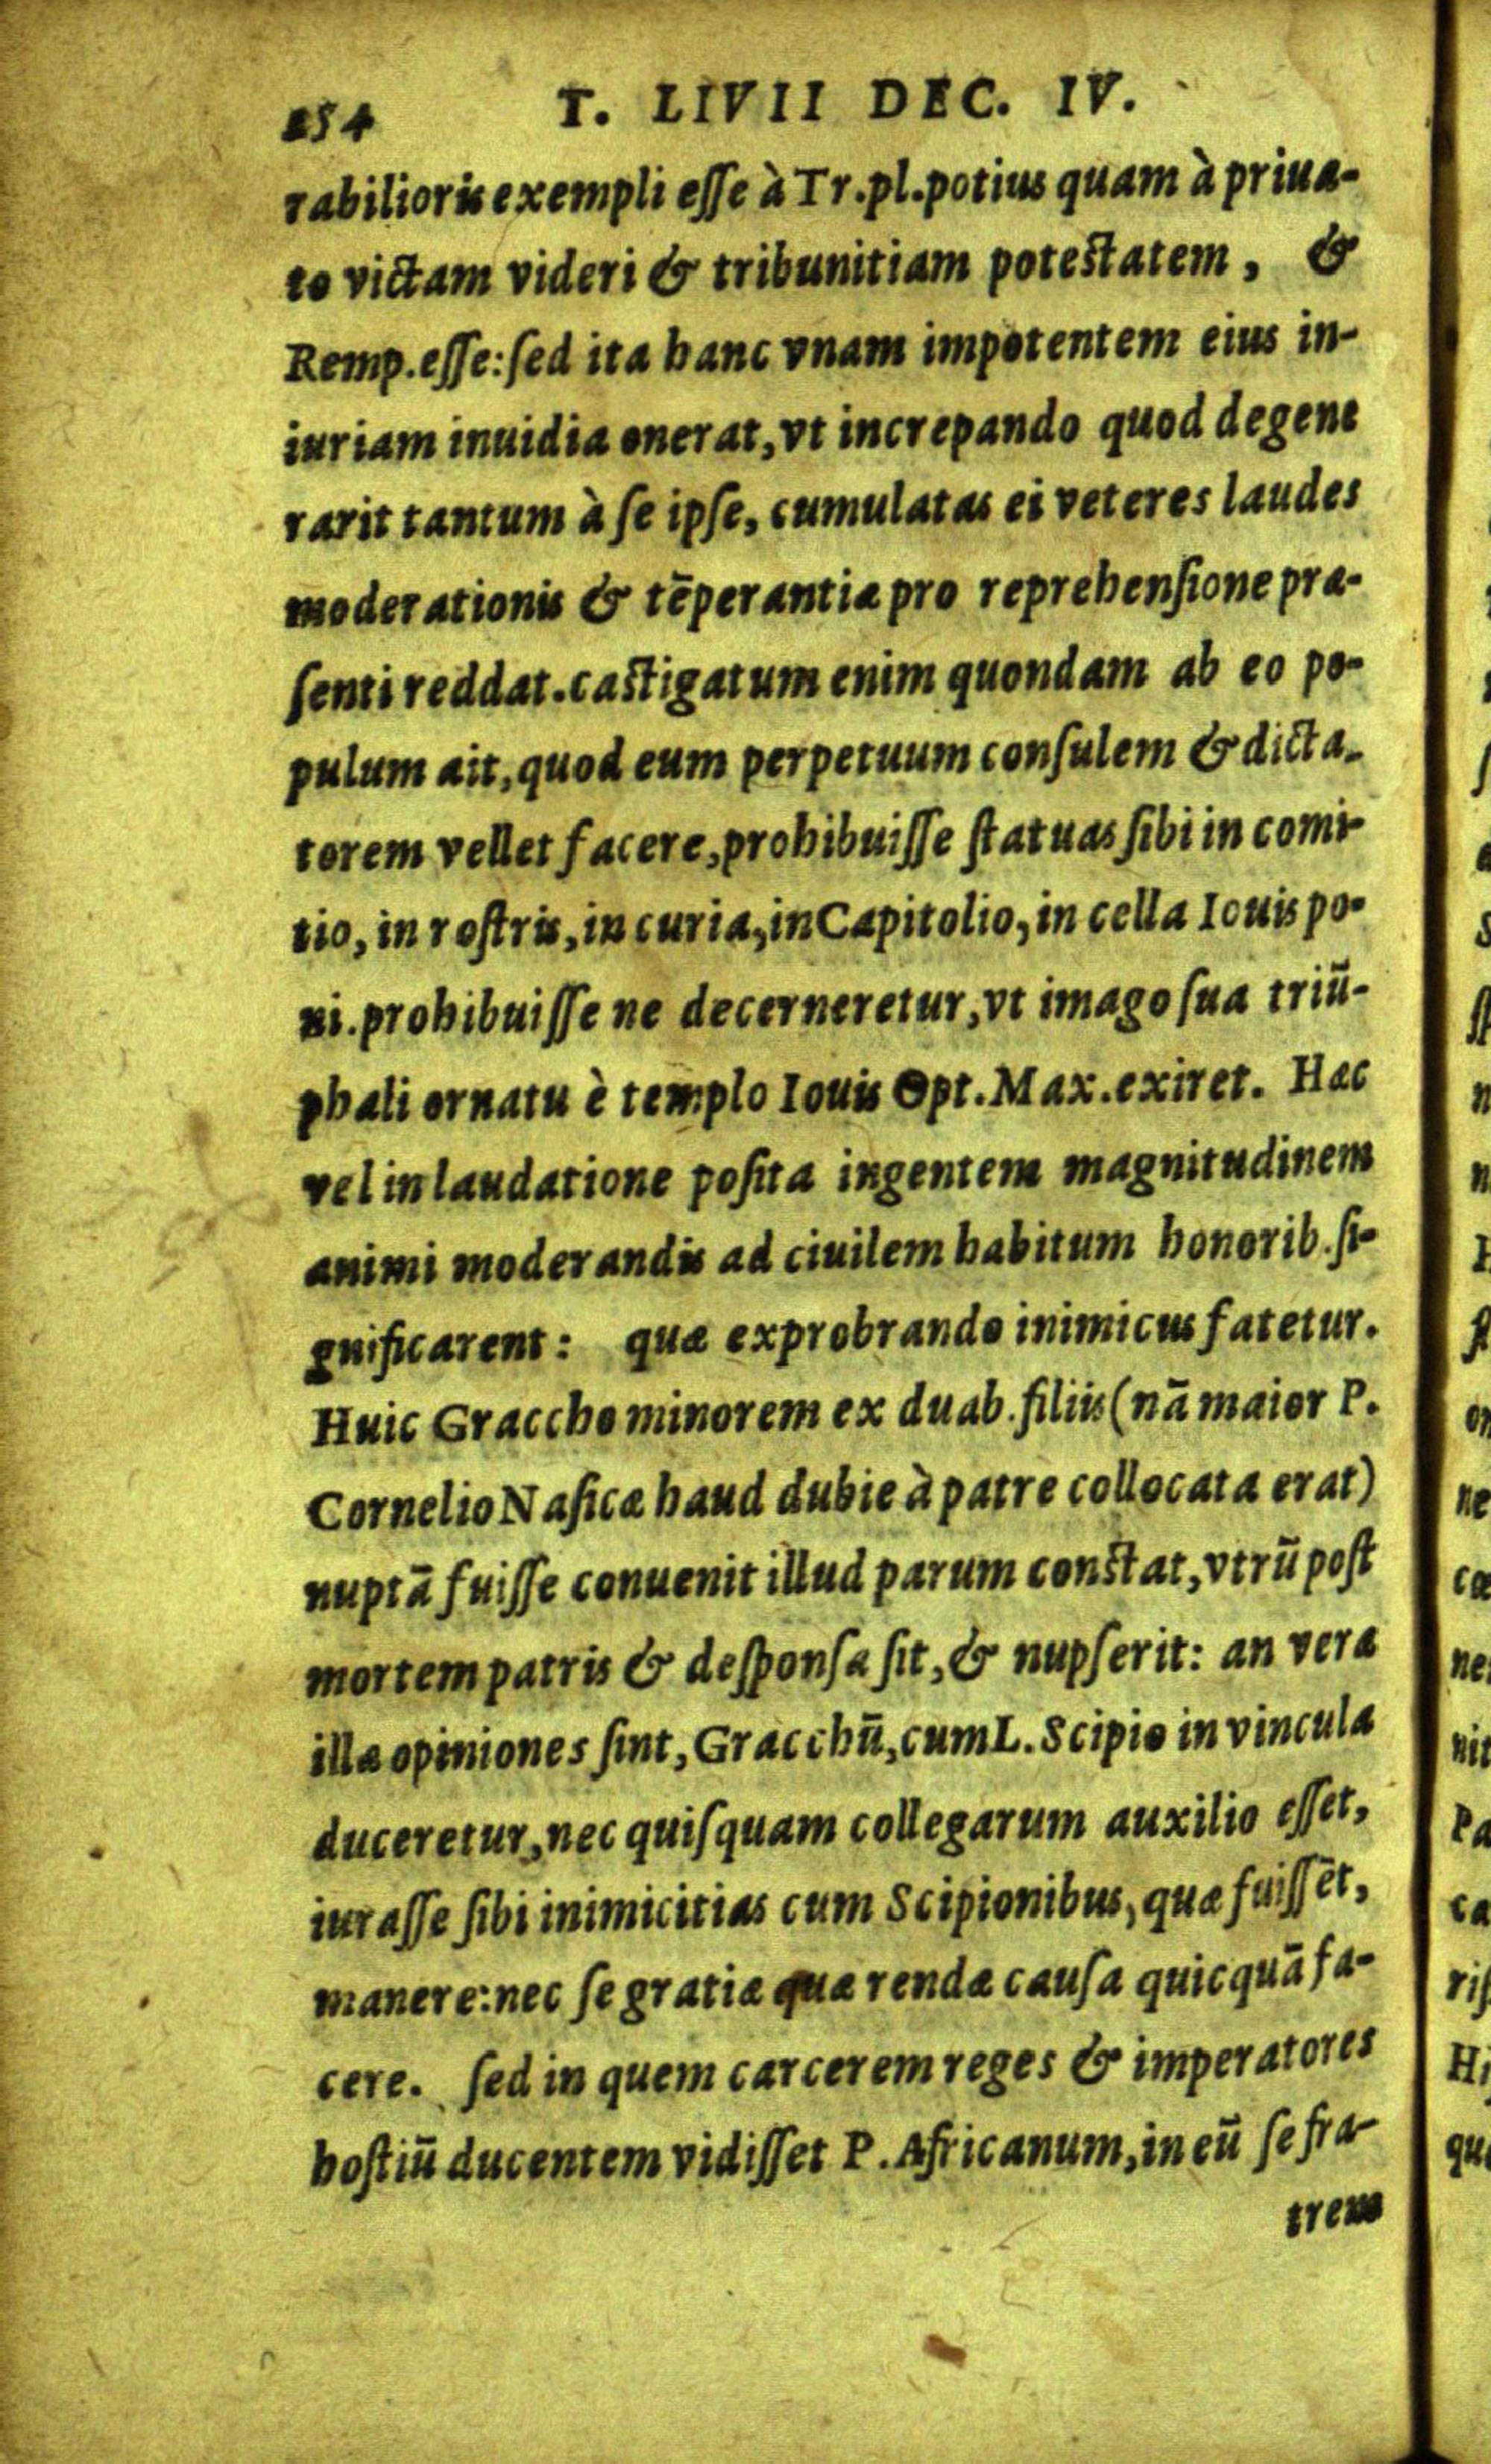 254 T. LIVII DEC. IV.
rabilioris exempli eſſe à Tr.pl.potius quam à priua-
to victam videri & tribunitiam poteſtatem, &
Remp.eſſe:ſed ita hanc vnam impotentem eius in-
iuriam inuidia onerat,vt increpando quod degene
rarit tantum à ſe ipſe, cumulatas ei veteres laudes
moderationis & tēperantiæ pro reprehenſione præ-
ſenti reddat.caſtigatum enim quondam ab eo po-
pulum ait,quod eum perpetuum conſulem & dicta-
torem vellet facere,prohibuiſſe ſtatuas ſibi in comi-
tio, in roſtris, in curia,in Capitolio, in cella Iouis po-
ni.prohibuiſſe ne decerneretur,vt imago ſua triū-
phali ornatu è templo Iouis Opt.Max.exiret. Hæc
vel in laudatione poſita ingentem magnitudinem
animi moderandis ad ciuilem habitum honorib.ſi-
gnificarent: quæ exprobrando inimicus fatetur.
Huic Graccho minorem ex duab.filiis (nā maior P.
Cornelio Naſicæ haud dubie à patre collocata erat)
nuptā fuiſſe conuenit illud parum conſtat,vtrū poſt
mortem patris & deſponſa ſit,& nupſerit: an vera
illæ opiniones ſint, Gracchū,cum L.Scipio in vincula
duceretur,nec quiſquam collegarum auxilio eſſet,
iuraſſe ſibi inimicitias cum Scipionibus, quæ fuiſſēt,
manere:nec ſe gratiæ quærendæ cauſa quicquā fa-
cere. ſed in quem carcerem reges & imperatores
hoſtiū ducentem vidiſſet P.Africanum,in eū ſe fra-
trem